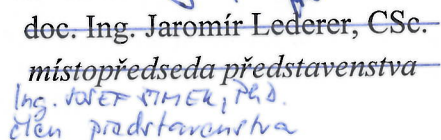 doc. Ing. Jaromír Lederer, CSc.
místopředseda představenstva
Ing. JOSEF ŠIMEK, PhD.
člen představenstva